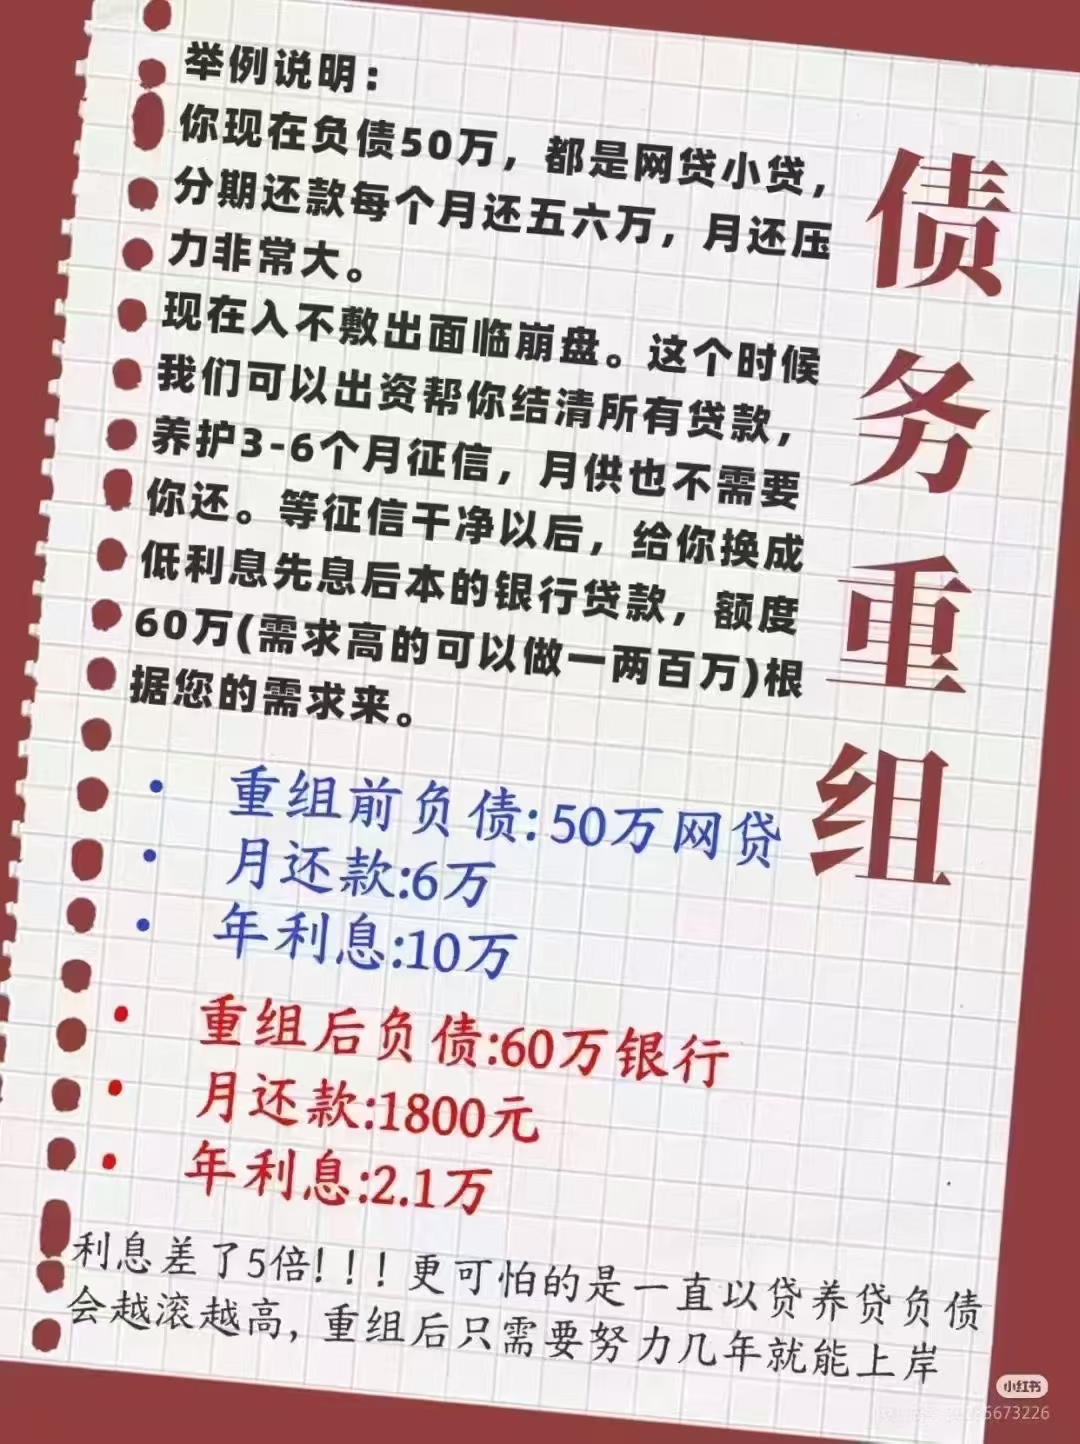 债务重组
举例说明：
你现在负债50万，都是网贷小贷，
分期还款每个月还五六万，月还压
力非常大。
现在入不敷出面临崩盘。这个时候
我们可以出资帮你结清所有贷款，
养护3-6个月征信，月供也不需要
你还。等征信干净以后，给你换成
低利息先息后本的银行贷款，额度
60万(需求高的可以做一两百万)根
据您的需求来。
• 重组前负债:50万网贷
• 月还款:6万
• 年利息:10万
• 重组后负债:60万银行
• 月还款:1800元
• 年利息:2.1万
利息差了5倍！！！更可怕的是一直以贷养贷负债
会越滚越高，重组后只需要努力几年就能上岸
小红书